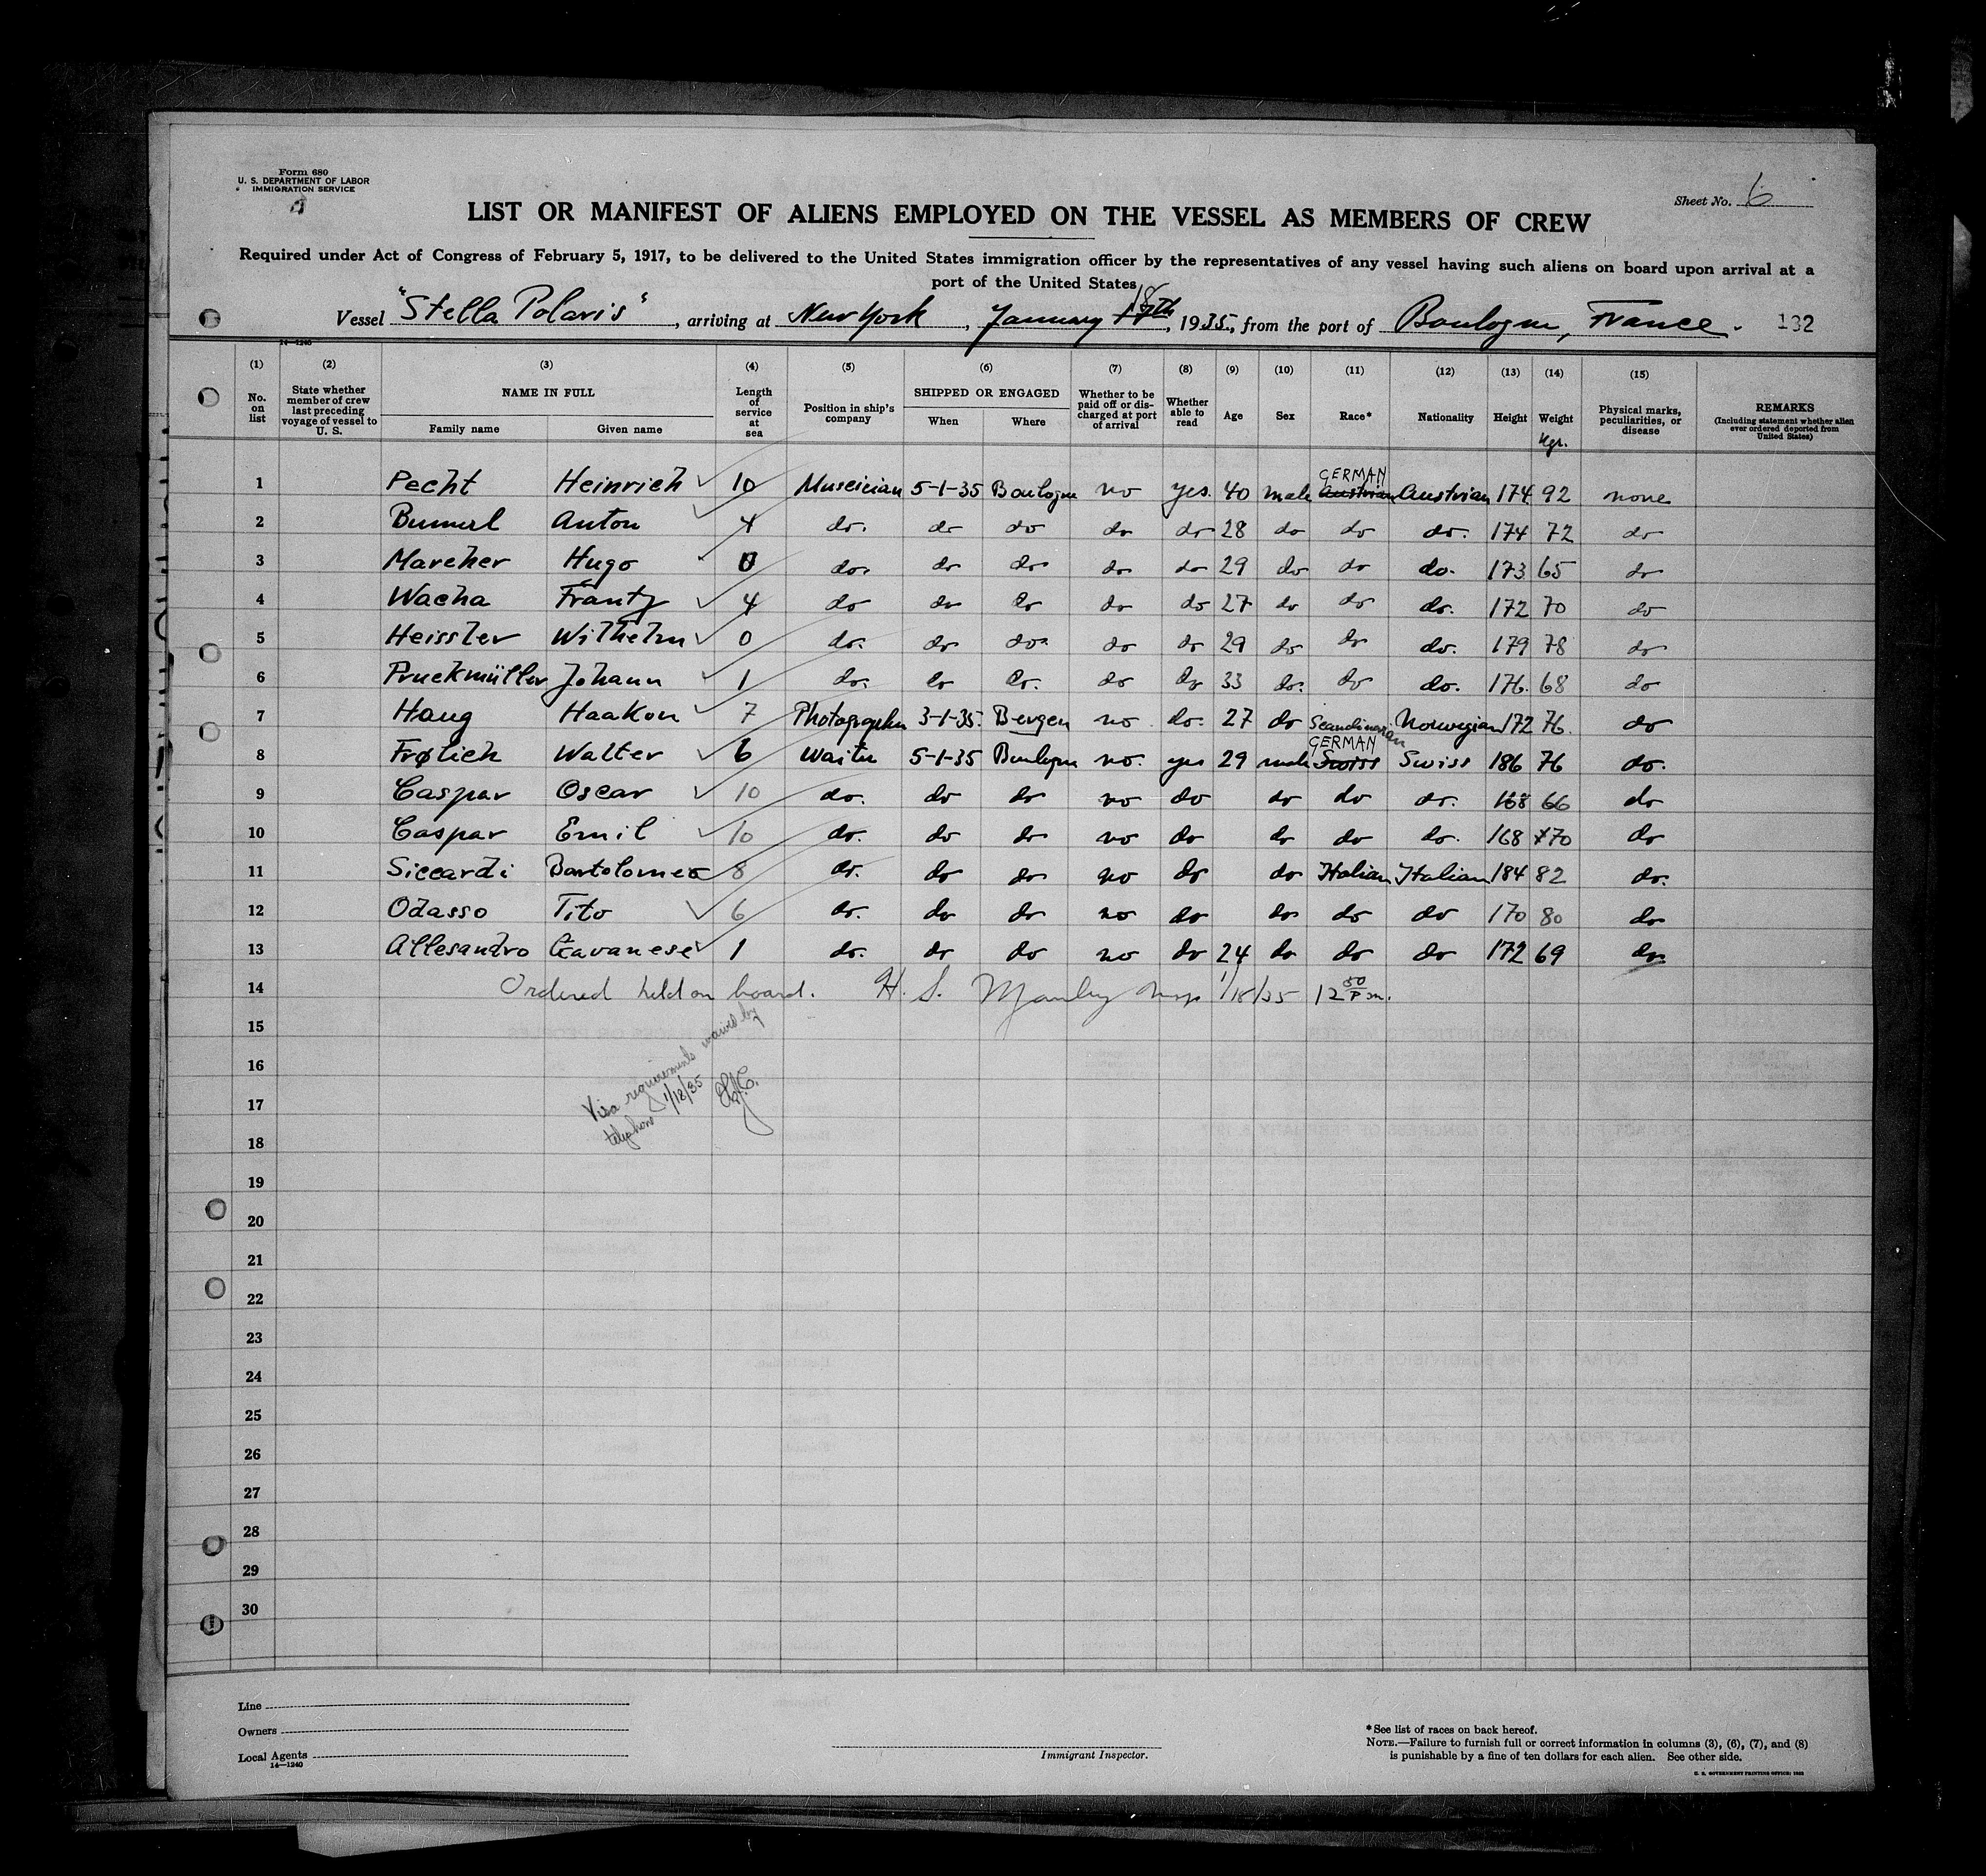 Form 680
U. S. DEPARTMENT OF LABOR
IMMIGRATION SERVICE
Sheet No. 6
LIST OR MANIFEST OF ALIENS EMPLOYED ON THE VESSEL AS MEMBERS OF CREW
Required under Act of Congress of February 5, 1917, to be delivered to the United States immigration officer by the representatives of any vessel having such aliens on board upon arrival at a
port of the United States
Vessel "Stella Polaris", arriving at New York, January 18th, 1935, from the port of Boulogne, France. 132
14—1240
(1) (2) (3) (4) (5) (6) (7) (8) (9) (10) (11) (12) (13) (14) (15)
No. on list State whether member of crew last preceding voyage of vessel to U. S. NAME IN FULL Family name Given name Length of service at sea Position in ship's company SHIPPED OR ENGAGED When Where Whether to be paid off or discharged at port of arrival Whether able to read Age Sex Race* Nationality Height Weight Kgr. Physical marks, peculiarities, or disease REMARKS (Including statement whether alien ever ordered deported from United States)
1 Pecht Heinrich 10 Museician 5-1-35 Boulogne no yes. 40 male GERMAN Austrian Austrian 174 92 none
2 Anton 4 do. do do do do 28 do do do. 174 72 do
3 Marcher Hugo 0 do. do do do do 29 do do do. 173 65 do
4 Wacha Frantz 4 do do do do do 27 do do do. 172 70 do
5 Heissler Wilhelm 0 do. do do. do do 29 do do do. 179 78 do
6 Pruckmüller Johann 1 do. do do. do do 33 do. do do. 176. 68 do
7 Haug Haakon 7 Photographer 3-1-35. Bergen no. do. 27 do Scandinavian Norwegian 172 76. do
8 Frølich Walter 6 Waiter 5-1-35 Boulogne no. yes 29 male GERMAN Swiss Swiss 186 76 do.
9 Caspar Oscar 10 do. do do no do do do do. 168 66 do
10 Caspar Emil 10 do. do do no do do do do. 168 70 do
11 Siccardi Bartolomeo 8 do. do do no do do Italian Italian 184 82 do.
12 Odasso Tito 6 do. do do no do do do do 170 80 do
13 Allesandro Gavanese 1 do. do do no do 24 do do do 172 69 do.
14 Ordered held on board. H. S. Manley Insp 1/18/35 12 50 P m.
15
Visa requirements waived by
telephone 1/18/35
16
17
18
19
20
21
22
23
24
25
26
27
28
29
30
Line
Owners
Local Agents
14—1240
Immigrant Inspector.
*See list of races on back hereof.
NOTE.—Failure to furnish full or correct information in columns (3), (6), (7), and (8)
is punishable by a fine of ten dollars for each alien. See other side.